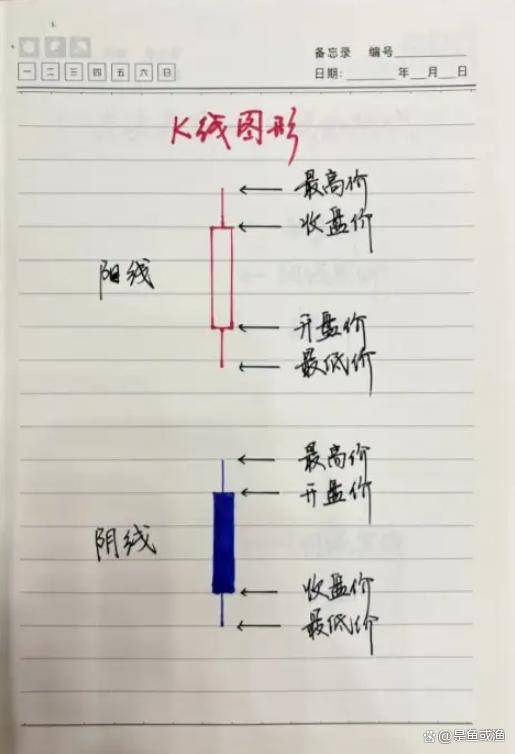 备忘录 编号
一 二 三 四 五 六 日
日期: 年 月 日
K线图形
最高价
收盘价
阳线
开盘价
最低价
最高价
开盘价
阴线
收盘价
最低价